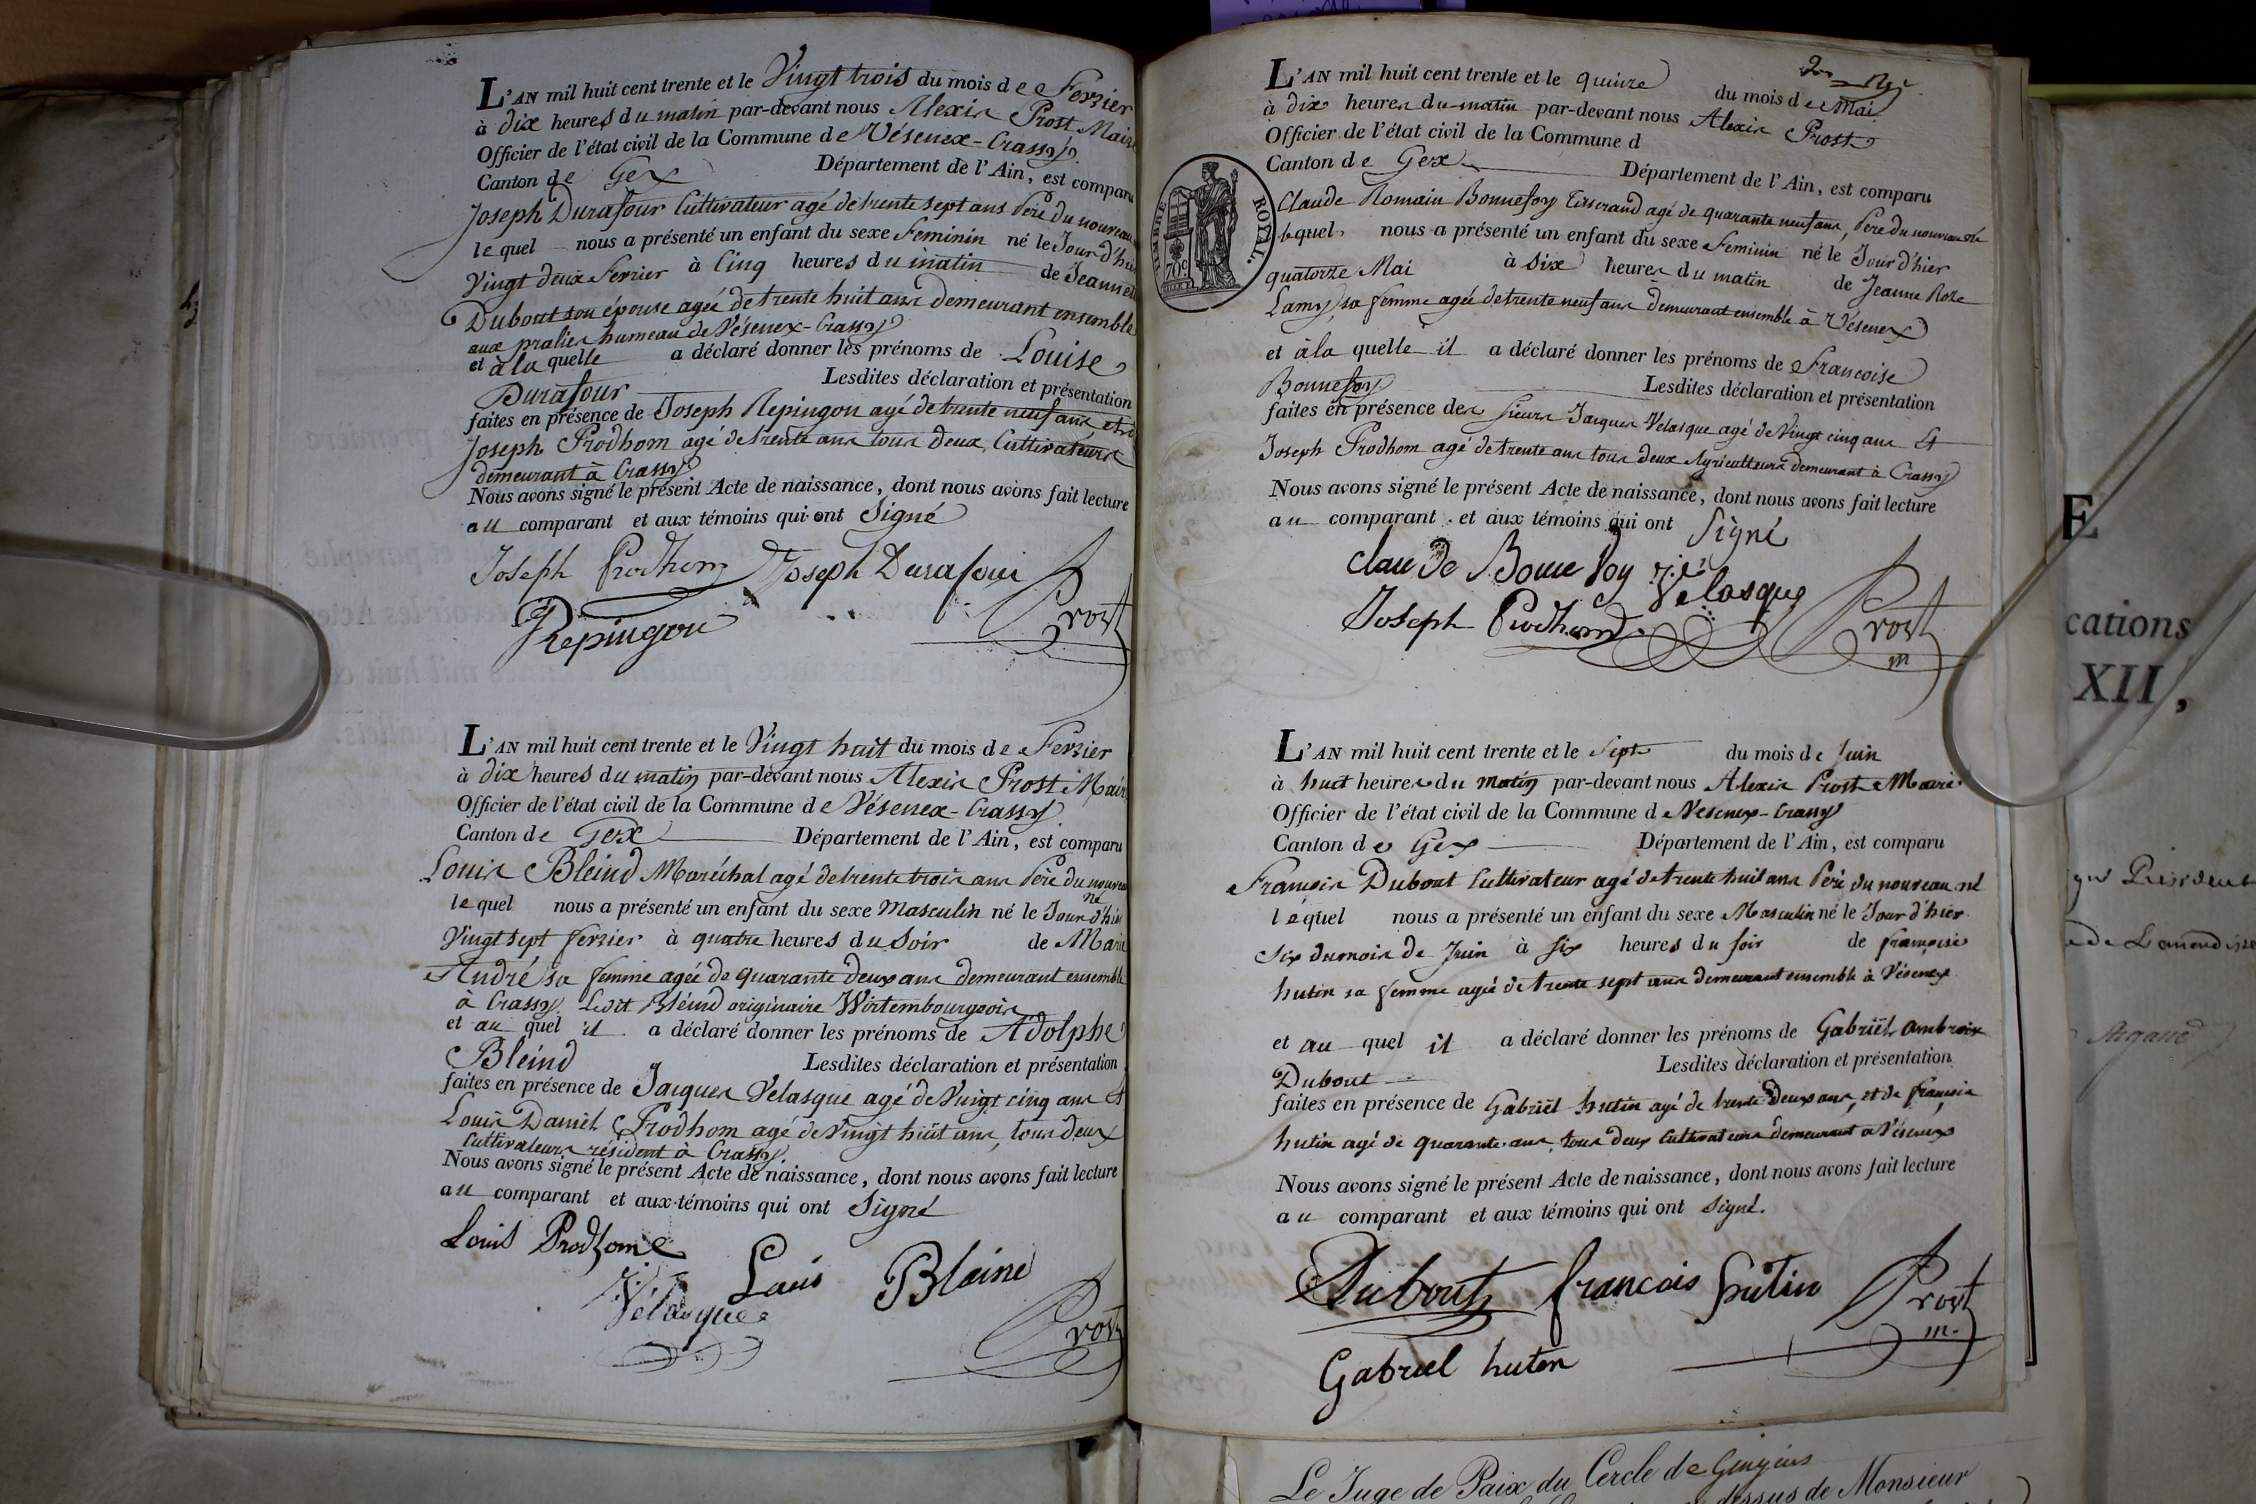 L'AN mil huit cent trente et le Vingt trois du mois de Fevrier
à dix heures du matin par-devant nous Alexis Prost Maire
Officier de l'état civil de la Commune de Vésenex-Crassy
Canton de Gex Département de l'Ain, est comparu
Joseph Durafour Cultivateur agé de trente sept ans Pere du nouveau
lequel nous a présenté un enfant du sexe Feminin né le Jour d'hier
Vingt deux Fevrier à Cinq heures du matin de Jeanne
Dubout son épouse agée de trente huit ans demeurant ensemble
aux pralies hameau de Vésenex-Crassy
et à la quelle a déclaré donner les prénoms de Louise
Durafour Lesdites déclaration et présentation
faites en présence de Joseph Repingon agé de trente neuf ans et de
Joseph Prodhom agé de trente ans tous deux Cultivateurs
demeurant à Crassy
Nous avons signé le présent Acte de naissance, dont nous avons fait lecture
au comparant et aux témoins qui ont Signé
Joseph Prodhom Joseph Durafour
Repingon Prost
L'AN mil huit cent trente et le Vingt huit du mois de Fevrier
à dix heures du matin par-devant nous Alexis Prost Maire
Officier de l'état civil de la Commune de Vésenex-Crassy
Canton de Gex Département de l'Ain, est comparu
Louis Bleind Maréchal agé de trente trois ans Père du nouveau
né
lequel nous a présenté un enfant du sexe Masculin né le Jour d'hier
Vingt sept fevrier à quatre heures du Soir de Marie
André sa femme agée de quarante deux ans demeurant ensemble
à Crassy Ledit Bleind originaire Wirtembourgeois
et au quel il a déclaré donner les prénoms de Adolphe
Bleind Lesdites déclaration et présentation
faites en présence de Jacques Velasque agé de Vingt cinq ans et
Louis Daniel Prodhom agé de Vingt huit ans, tous deux
Cultivateurs résident à Crassy.
Nous avons signé le présent Acte de naissance, dont nous avons fait lecture
au comparant et aux témoins qui ont Signé
Louis Prodhome
Velasque Louis Blaine
Prost
2me Rle
L'AN mil huit cent trente et le quinze du mois de Mai
à dix heures du matin par-devant nous Alexis Prost
Officier de l'état civil de la Commune d
Canton de Gex Département de l'Ain, est comparu
TIMBRE ROYAL
70c
Claude Romain Bonnefoy Tisserand agé de quarante neuf ans, Pere du nouveau né
lequel nous a présenté un enfant du sexe Feminin né le Jour d'hier
quatorze Mai à Six heures du matin de Jeanne Roze
Lamy sa femme agée de trente neuf ans demeurant ensemble à Vésenex
et à la quelle il a déclaré donner les prénoms de Francoise
Bonnefoy Lesdites déclaration et présentation
faites en présence des Sieurs Jacques Velasque agé de Vingt cinq ans Et
Joseph Prodhom agé de trente ans tous deux Agriculteurs demeurant à Crassy
Nous avons signé le présent Acte de naissance, dont nous avons fait lecture
au comparant et aux témoins qui ont Signé
Claude Bonnefoy Velasque
Joseph Prodhom Prost
m
L'AN mil huit cent trente et le Sept du mois de Juin
à huit heures du matin par-devant nous Alexis Prost Maire
Officier de l'état civil de la Commune de Vesenex-Crassy
Canton de Gex Département de l'Ain, est comparu
François Dubout Cultivateur agé de trente huit ans Peré du nouveau né
lequel nous a présenté un enfant du sexe Masculin né le Jour d'hier
Six du mois de Juin à Six heures du soir de françoise
hutin sa femme agée de trente sept ans demeurant ensemble à Vésenex
et au quel il a déclaré donner les prénoms de Gabriël Ambroise
Dubout Lesdites déclaration et présentation
faites en présence de Gabriël hutin agé de trente deux ans, et de françois
hutin agé de quarante ans, tous deux Cultivateurs demeurant à Vésenex
Nous avons signé le présent Acte de naissance, dont nous avons fait lecture
au comparant et aux témoins qui ont Signé.
Dubout francois hutin Prost
m.
Gabriel huten
E
cations
XII,
Le Juge de Paix du Cercle de Gingins
dessus de Monsieur